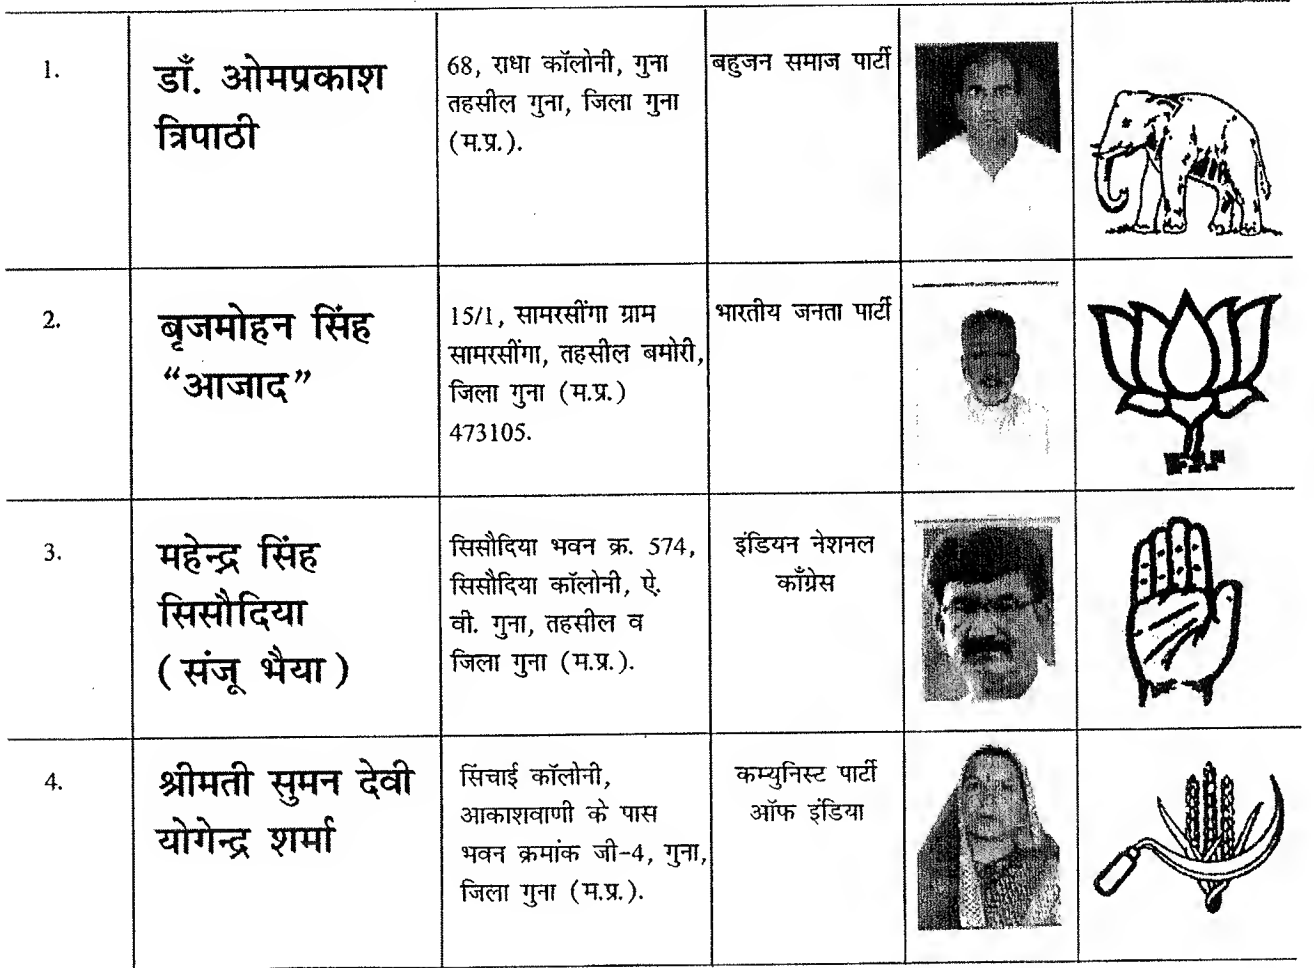 1.
डॉ. ओमप्रकाश
त्रिपाठी
68, राधा कॉलोनी, गुना
तहसील गुना, जिला गुना
(म.प्र.).
बहुजन समाज पार्टी
2.
बृजमोहन सिंह
“आजाद”
15/1, सामरसींगा ग्राम
सामरसींगा, तहसील बमोरी,
जिला गुना (म.प्र.)
473105.
भारतीय जनता पार्टी
3.
महेन्द्र सिंह
सिसौदिया
(संजू भैया)
सिसौदिया भवन क्र. 574,
सिसौदिया कॉलोनी, ऐ.
वी. गुना, तहसील व
जिला गुना (म.प्र.).
इंडियन नेशनल
काँग्रेस
4.
श्रीमती सुमन देवी
योगेन्द्र शर्मा
सिंचाई कॉलोनी,
आकाशवाणी के पास
भवन क्रमांक जी-4, गुना,
जिला गुना (म.प्र.).
कम्युनिस्ट पार्टी
ऑफ इंडिया